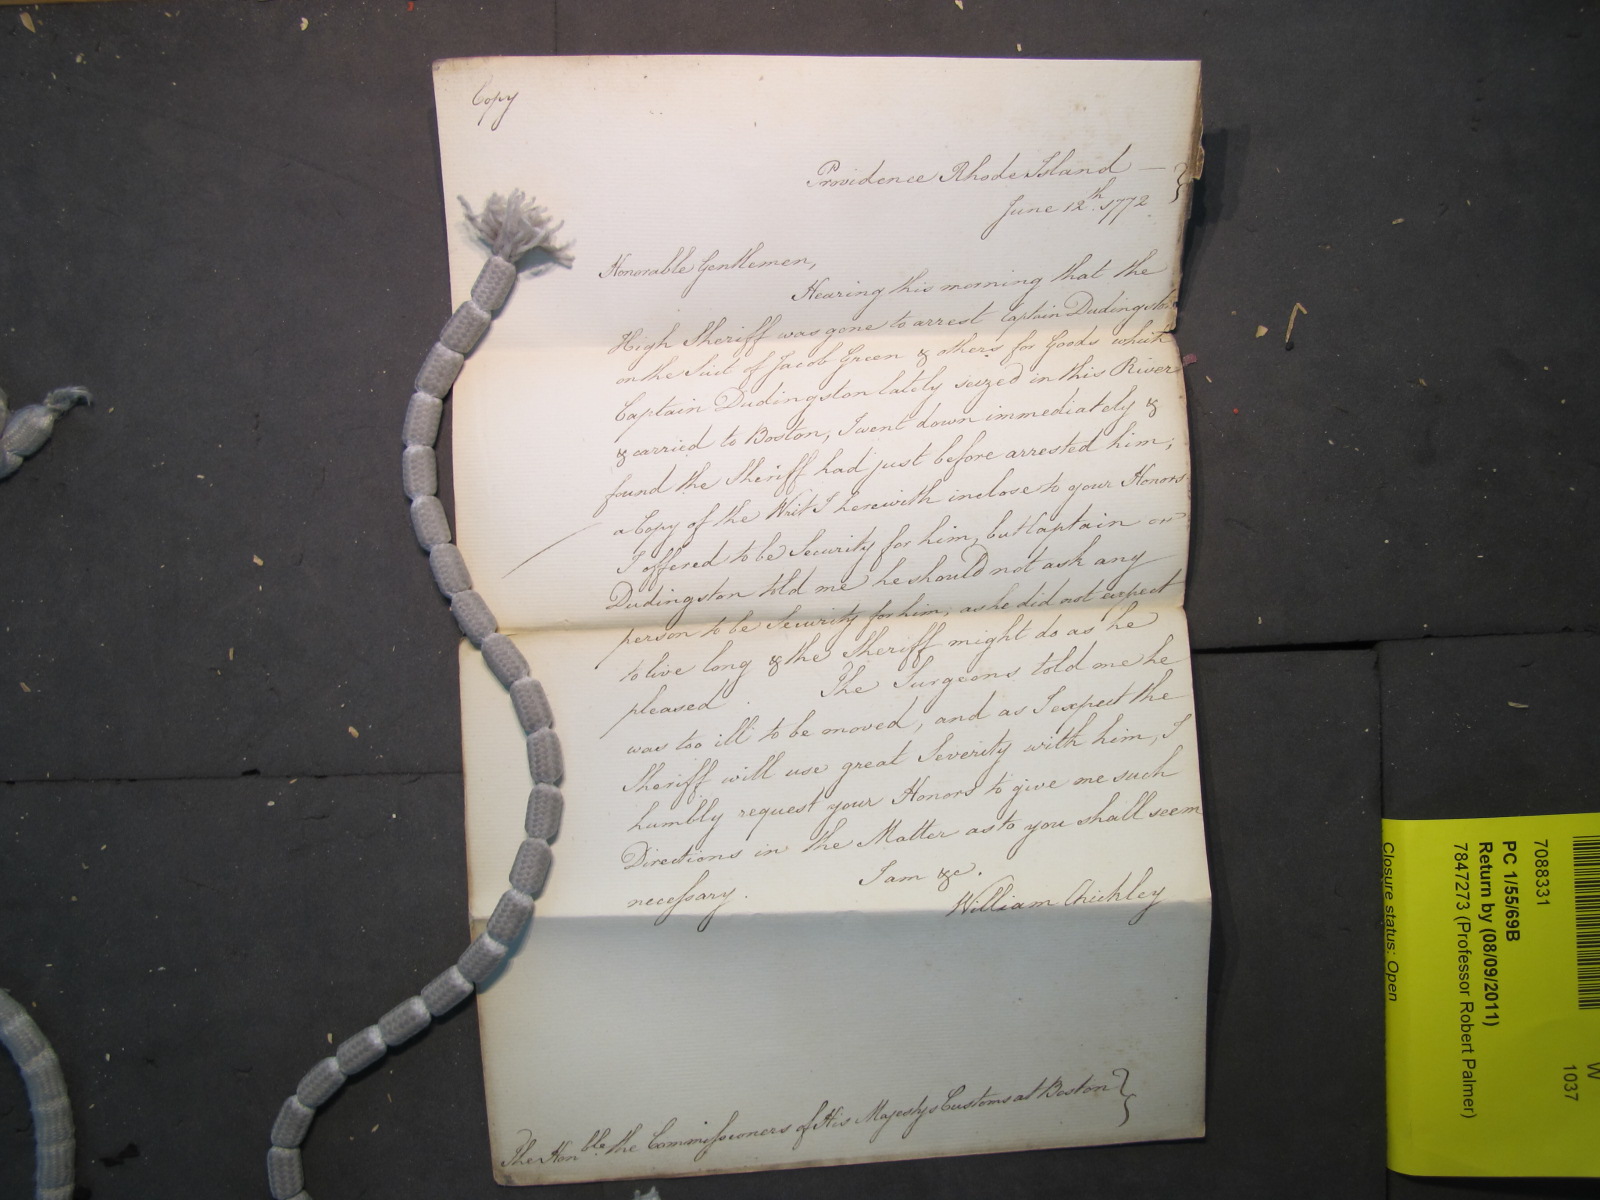 Copy
Providence Rhode Island —
June 12th. 1772.
Honorable Gentlemen,
Hearing this morning that the
High Sheriff was gone to arrest Captain Dudingston
on the Suit of Jacob Green & others for Goods which
Captain Dudingston lately seized in this River
& carried to Boston, I went down immediately &
found the Sheriff had just before arrested him;
a Copy of the Writ I herewith inclose to your Honors
I offered to be Security for him, but Captain
Dudingston told me he should not ask any
person to be Security for him; as he did not expect
to live long & the Sheriff might do as he
pleased. The Surgeons told me he
was too ill to be moved, and as I expect the
Sheriff will use great Severity with him, I
humbly request your Honors to give me such
Directions in the Matter as to you shall seem
necessary. I am &c.
William Chickley
The Honble. the Commissioners of His Majestys Customs at Boston
7088331
PC 1/55/69B
Return by (08/09/2011)
7847273 (Professor Robert Palmer)
Closure status: Open
W
1037